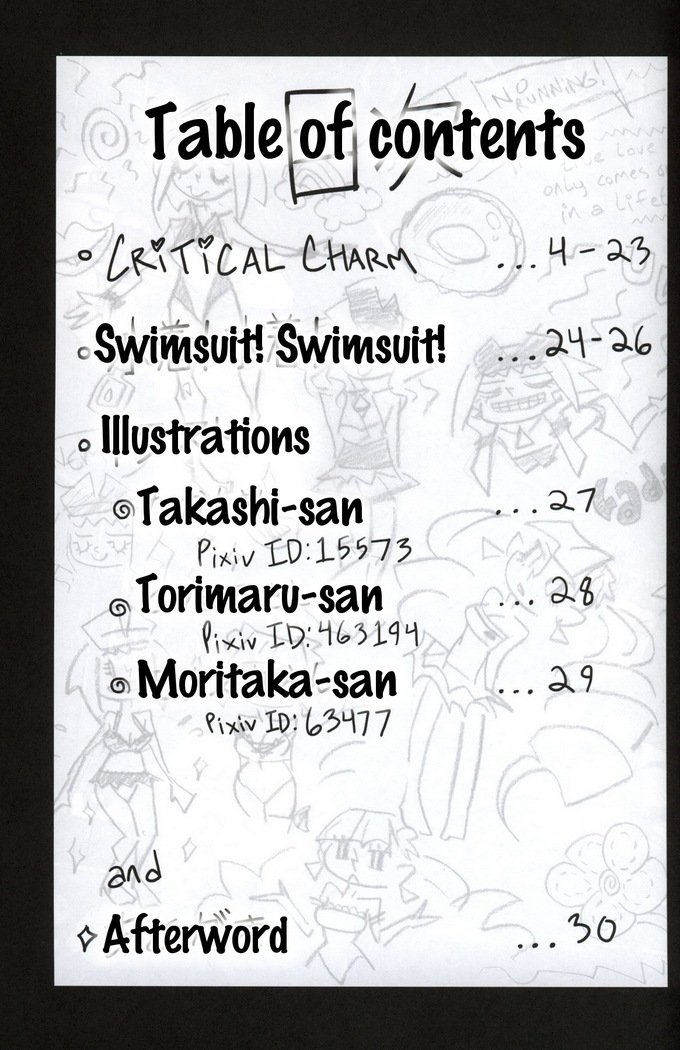 NO RUNNING!
Table of contents
love
only comes
in a
CRITICAL CHARM ...4-23
Swimsuit! Swimsuit! ...24-26
Illustrations
Takashi-san ...27
Pixiv ID:15573
Torimaru-san ...28
Pixiv ID:463194
Moritaka-san ...29
Pixiv ID:63477
and
Afterword ...30